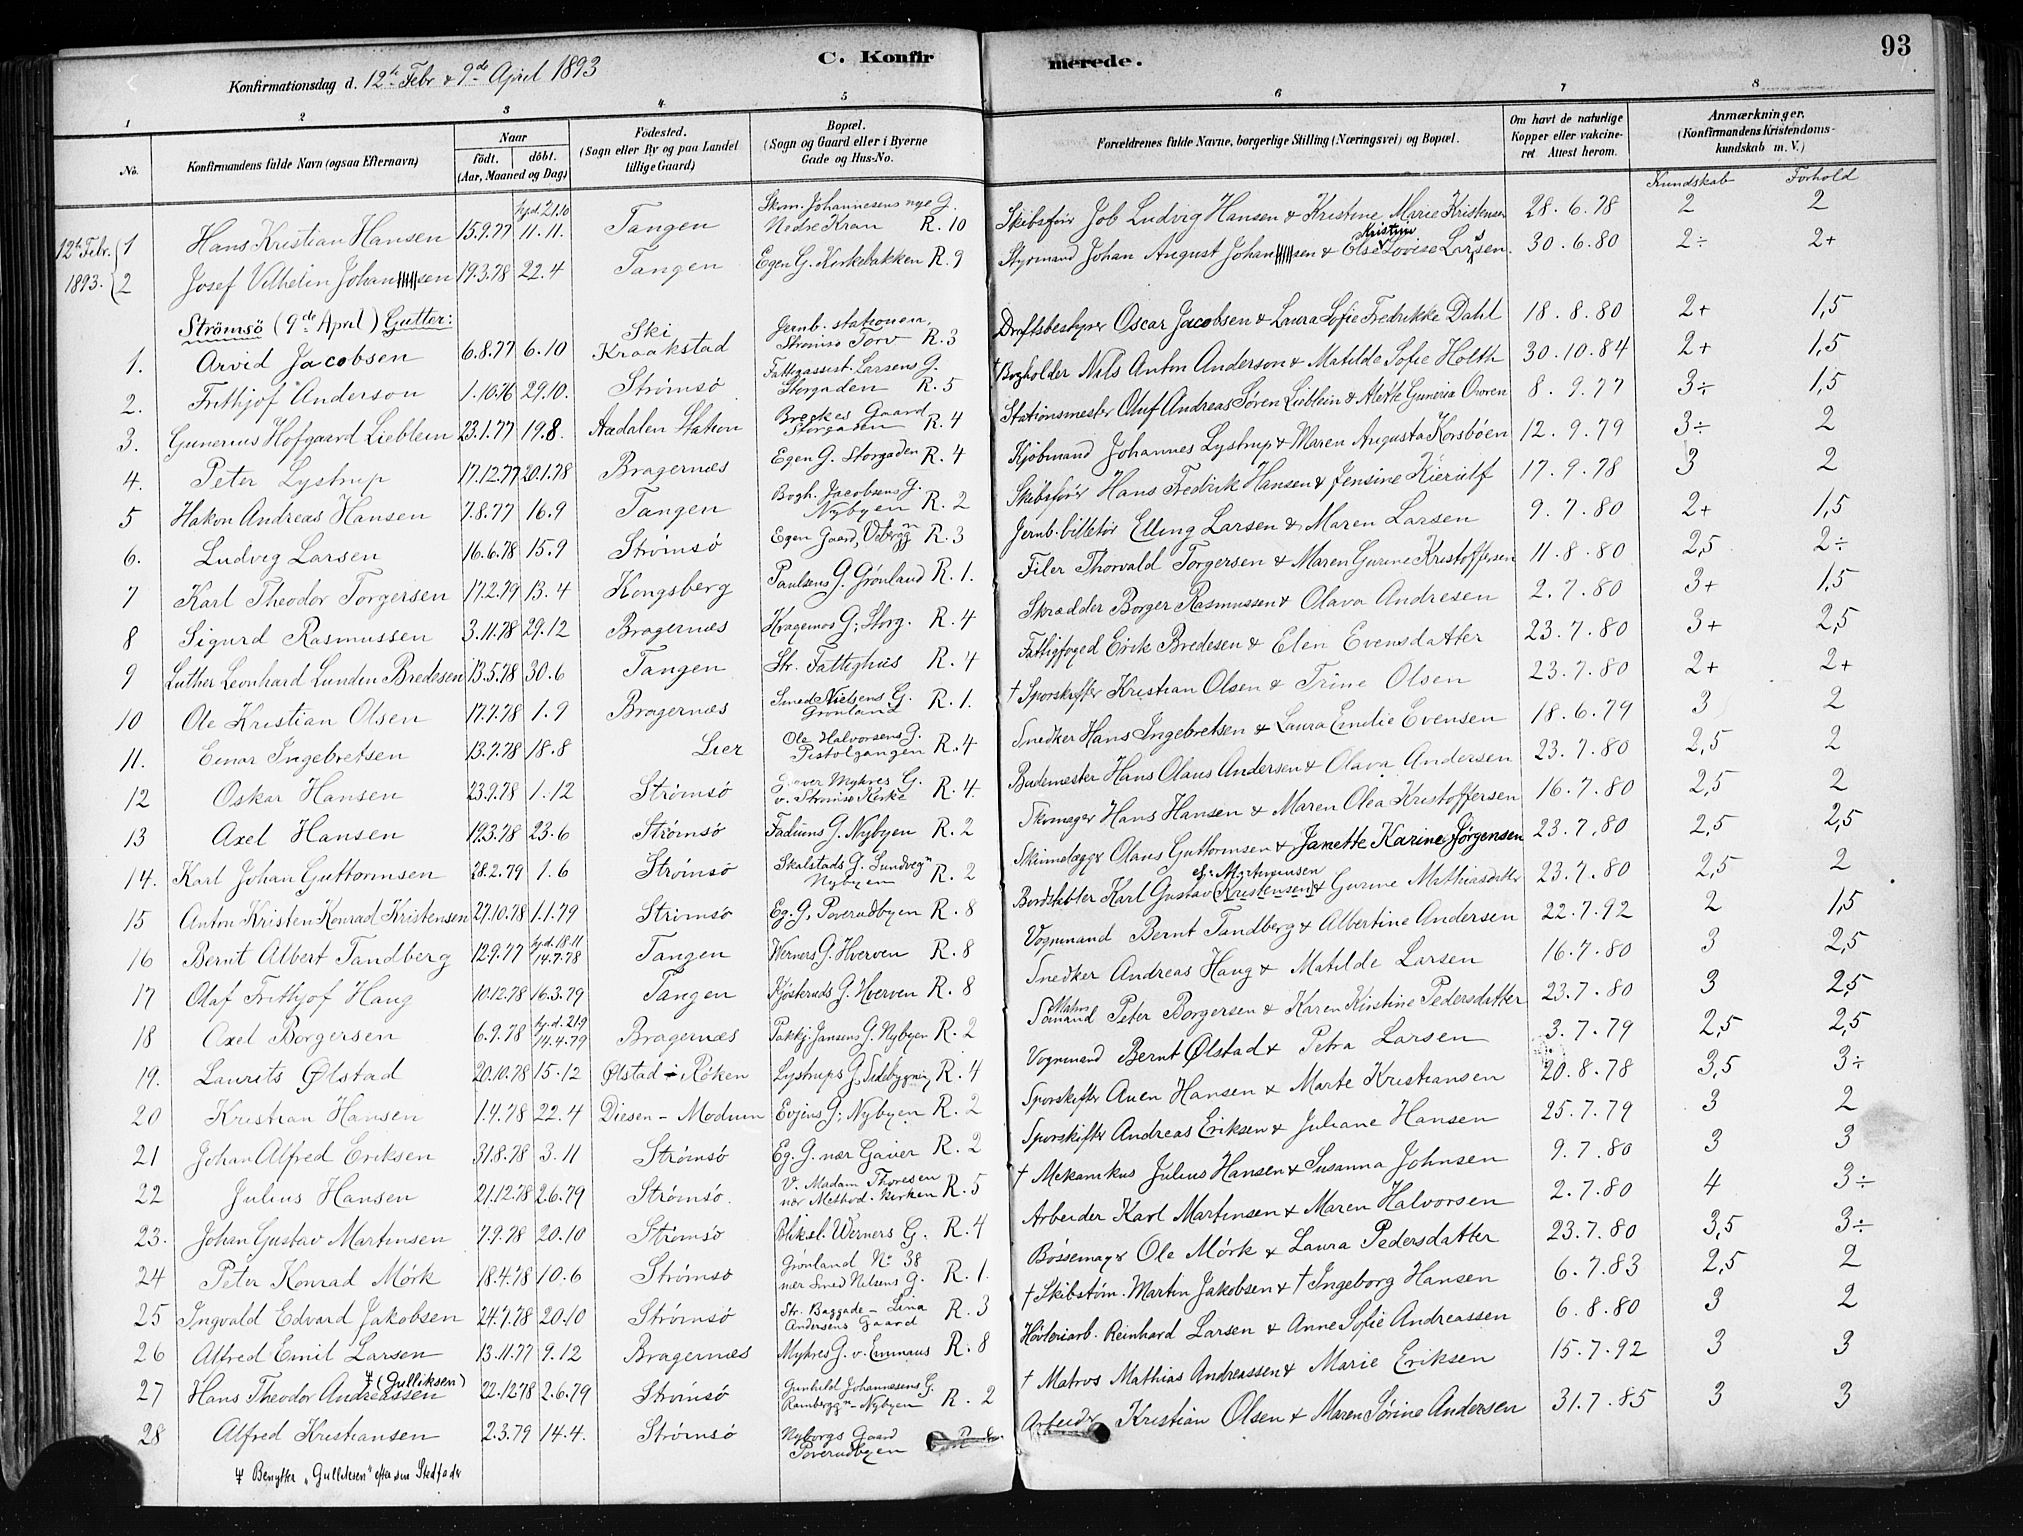 93
C. Konfirmerede.
Konfirmationsdag d. 12te Febr & 9de April 1893
1 2 3 4 5 6 7 8
No. Konfirmandens fulde Navn (ogsaa Efternavn) Naar födt. döbt. (Aar, Maaned og Dag) Födested. (Sogn eller By og paa Landet tillige Gaard) Bopæl. (Sogn og Gaard eller i Byerne Gade og Hus-No. Forældrenes fulde Navne, borgerlige Stilling (Næringsvei) og Bopæl. Om havt de naturlige Kopper eller vakcineret. Attest herom. Anmærkninger. (Konfirmandens Kristendomskundskab m. V.)
Kundskab Forhold
12te Febr. 1893. 1 Hans Kristian Hansen 15.9.77 hjd. 21.10 11.11. Tangen Skom. Johannesens nye G. Nedre Kran R. 10 Skibsfør Job Ludvig Hansen & Kristine Marie Kristensen 28.6.78 2 2
2 Josef Vilhelm Johansen 19.3.78 22.4 Tangen Egen G. Kirkebakken R. 9 Styrmand Johan August Johansen & Else Kristine Lovise Larsen 30.6.80 2÷ 2+
Strömsö (9de April) Gutter:
1. Arvid Jacobsen 6.8.77 6.10 Ski Kraakstad Jernb. stationen, Strömsö Torv R. 3 Driftsbestyrer Oscar Jacobsen & Laura Sofie Fredrikke Dahl 18.8.80 2+ 1,5
2. Frithjof Anderson 1.10.76 29.10. Strømsö Fattigassist. Larsens G. Storgaden R. 5 † Bogholder Nils Anton Anderson & Matilde Sofie Holth 30.10.84 2+ 1,5
3. Gunerius Hofgaard Lieblein 23.1.77 19.8. Aadalen Station Breckes Gaard Storgaden R. 4 Stationsmester Oluf Andreas Sören Lieblein & Alette Guneria Ovoren 8.9.77 3÷ 1,5
4. Peter Lystrup 17.12.77 20.1.78 Bragernæs Egen G. Storgaden R. 4 Kjöbmand Johannes Lystrup & Maren Augusta Korsböen 12.9.79 3÷ 2
5 Hakon Andreas Hansen 7.8.77 16.9 Tangen Bogh. Jacobsens G. Nybyen R. 2 Skibsförer Hans Fredrik Hansen & Jensine Kierulf 17.9.78 3 2
6. Ludvig Larsen 16.6.78 15.9 Strømsö Egen Gaard, R. 3 Jernb. billetør Elling Larsen & Maren Larsen 9.7.80 2+ 1,5
7 Karl Theodor Torgersen 17.2.79 13.4 Kongsberg Paulsens G. Grönland R. 1. Filer Thorvald Torgersen & Maren Gurine Kristoffersen 11.8.80 2,5 2÷
8 Sigurd Rasmussen 3.11.78 29.12 Bragernæs Kragemos G, Storg. R. 4 Skrædder Borger Rasmussen & Olava Andresen 2.7.80 3+ 1,5
9 Luther Leonhard Lunden Bredesen 13.5.78 30.6 Tangen Str. Fattighus R. 4 Fattigfoged Erik Bredesen & Elen Evensdatter 23.7.80 3+ 2,5
10 Ole Kristian Olsen 17.7.78 1.9 Bragernæs Smed Nielsens G. Grönland R. 1. † Sporskifter Kristian Olsen & Trine Olsen 23.7.80 2+ 2+
11. Einar Ingebretsen 13.7.78 18.8 Lier Ole Halvorsens G. Pistolgangen R. 4 Snedker Hans Ingebretsen & Laura Emilie Evensen 18.6.79 3 2
12 Oskar Hansen 23.9.78 1.12 Strømsö Graver Myhres G. v. Strømsö Kirke R. 4. Bademester Hans Olaus Andersen & Olava Andersen 23.7.80 2,5 2
13 Axel Hansen 19.3.78 23.6 Strømsö Fadums G. Nybyen R. 2 Skomager Hans Hansen & Maren Olea Kristoffersen 16.7.80 2,5 2
14. Karl Johan Guttormsen 28.2.79 1.6 Strømsö Skalstads G. Lundvegn Nybyen R. 2 Skinnelægger Olaus Guttormsen & Janette Karine Jörgensen 23.7.80 2,5 2,5
15 Anton Kristen Konrad Kristensen 27.10.78 1.1.79 Strømsö Eg. G, Poverudbyen R. 8 Bordstabler Karl Gustav (Kristensen) & Gurine Mathiasdatter 23.7.80 2,5 2
16 Bernt Albert Tandberg 12.9.77 hjd. 18.11 14.7.78 Tangen Werners G. Hverven R. 8 Vognmand Bernt Tandberg & Albertine Andersen 22.7.92 2 1,5
17 Olaf Frithjof Haug 10.12.78 16.3.79 Tangen Kjösteruds G. Hverven R. 8 Snedker Andreas Haug & Matilde Larsen 16.7.80 3 2,5
18 Axel Borgersen 6.9.78 hj.d. 21.9 14.4.79 Bragernæs Pakkj. Jansens G. Nybyen R. 2 Sömand Peter Borgersen & Karen Kirstine Pedersdatter 23.7.80 3 2,5
19. Laurits Ølstad 20.10.78 15.12 Ølstad i Röken Lystrups G, Sidebygning R. 4 Vognmand Bernt Ølstad & Petra Larsen 3.7.79 2,5 2,5
20 Kristian Hansen 1.4.78 22.4 Diesen - Modum Evjens G, Nybyen R. 2 Sporskifter Auen Hansen & Marte Kristiansen 20.8.78 3,5 3÷
21 Johan Alfred Eriksen 31.8.78 3.11 Strømsö Eg. G. nær Gaver R. 2 Sporskifter Andreas Eriksen & Juliane Hansen 25.7.79 3 2
22 Julius Hansen 21.12.78 26.79 Strømsö. V. Madam Thoresen nær Method. kirken R. 5 † Mekanikus Julius Hansen & Susanna Johnsen 9.7.80 3 3
23. Johan Gustav Martinsen 7.9.78 20.10 Strømsö Bliksl. Werners G. R. 4 Arbeider Karl Martinsen & Maren Halvorsen 2.7.80 4 3÷
24 Peter Konrad Mörk 18.4.78 10.6 Strømsö Grönland No 38 nær Smed Nilsens G. R. 1. Bössemager Ole Mörk & Laura Pedersdatter 23.7.80 3,5 3÷
25 Ingvald Edvard Jakobsen 24.7.78 20.10 Strømsö Str. Baggade - Lina Andersens Gaard R. 3 † Skibstöm. Martin Jakobsen & † Ingeborg Hansen 6.7.83 2,5 2
26 Alfred Emil Larsen 13.11.77 9.12 Bragernæs Myhres G. v. Emmaus R. 8 Hövleriarb. Reinhard Larsen & Anne Sofie Andreassen 6.8.80 3 2
27 Hans Theodor Andreassen (Gulliksen) 22.12.78 2.6.79 Strømsö Gunhild Johannesens G. Nybyen R. 2 † Matros Mathias Andreassen & Marie Eriksen 15.7.92 3 3
28 Alfred Kristiansen 2.3.79 14.4. Strømsö Nyborgs Gaard Poverudbyen Arbeider Kristian Olsen & Maren Sörine Andersen 31.7.85 3 3
Benytter "Gulliksen" efter sin Stedfader